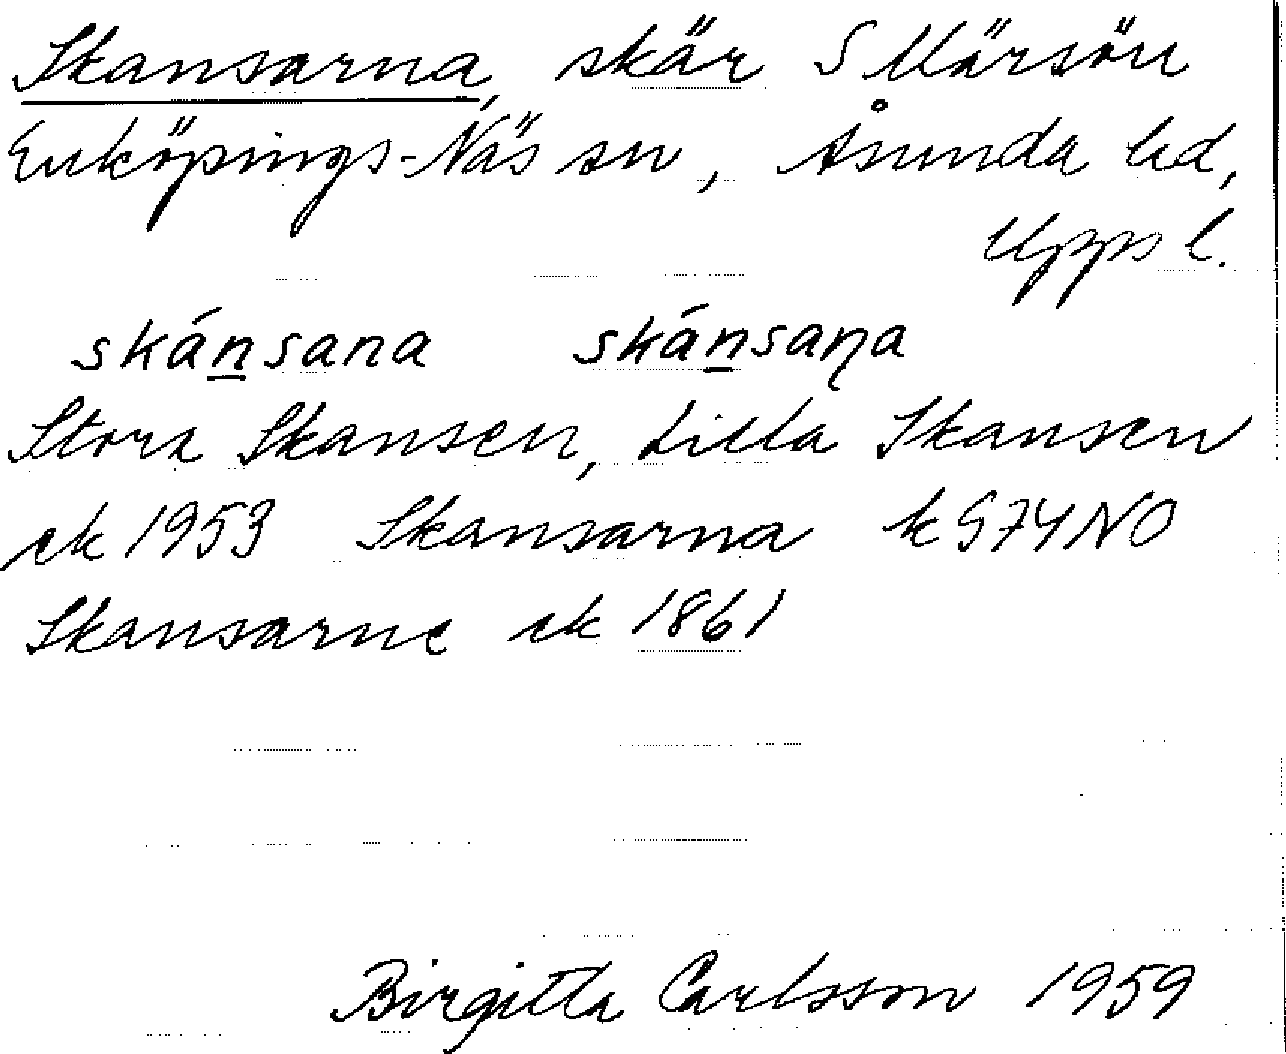 Skansarna, skär S Märsön
Enköpings-Näs sn, Åsunda hd,
Upps l.
skánsana skánsaṇa
Stora Skansen, Lilla Skansen
ek 1953 Skansarna k 574NO
Skansarne ek 1861
Birgitta Carlsson 1959